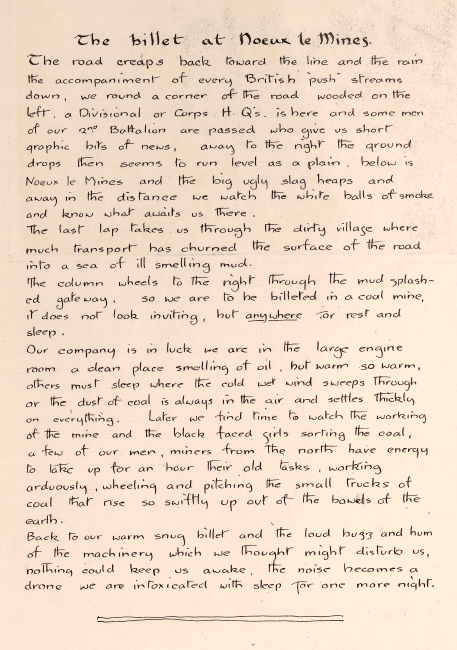 The billet at Noeux le Mines.
The road creaps back toward the line and the rain
the accompaniment of every British "push" streams
down, we round a corner of the road wooded on the
left. a Divisional or Corps H.Q's. is here and some men
of our 2nd Battalion are passed who give us short
graphic bits of news, away to the right the ground
drops then seems to run level as a plain. below is
Noeux le Mines and the big ugly slag heaps and
away in the distance we watch the white balls of smoke
and know what awaits us there.
The last lap takes us through the dirty village where
much transport has churned the surface of the road
into a sea of ill smelling mud.
The column wheels to the right through the mud splash-
ed gateway. so we are to be billeted in a coal mine,
it does not look inviting, but anywhere for rest and
sleep.
Our company is in luck we are in the large engine
room a clean place smelling of oil, but warm so warm,
others must sleep where the cold wet wind sweeps through
or the dust of coal is always in the air and settles thickly
on everything. Later we find time to watch the working
of the mine and the black faced girls sorting the coal,
a few of our men, miners from the north have energy
to take up for an hour their old tasks, working
arduously, wheeling and pitching the small trucks of
coal that rise so swiftly up out of the bowels of the
earth.
Back to our warm snug billet and the loud buzz and hum
of the machinery which we thought might disturb us,
nothing could keep us awake, the noise becomes a
drone we are intoxicated with sleep for one more night.